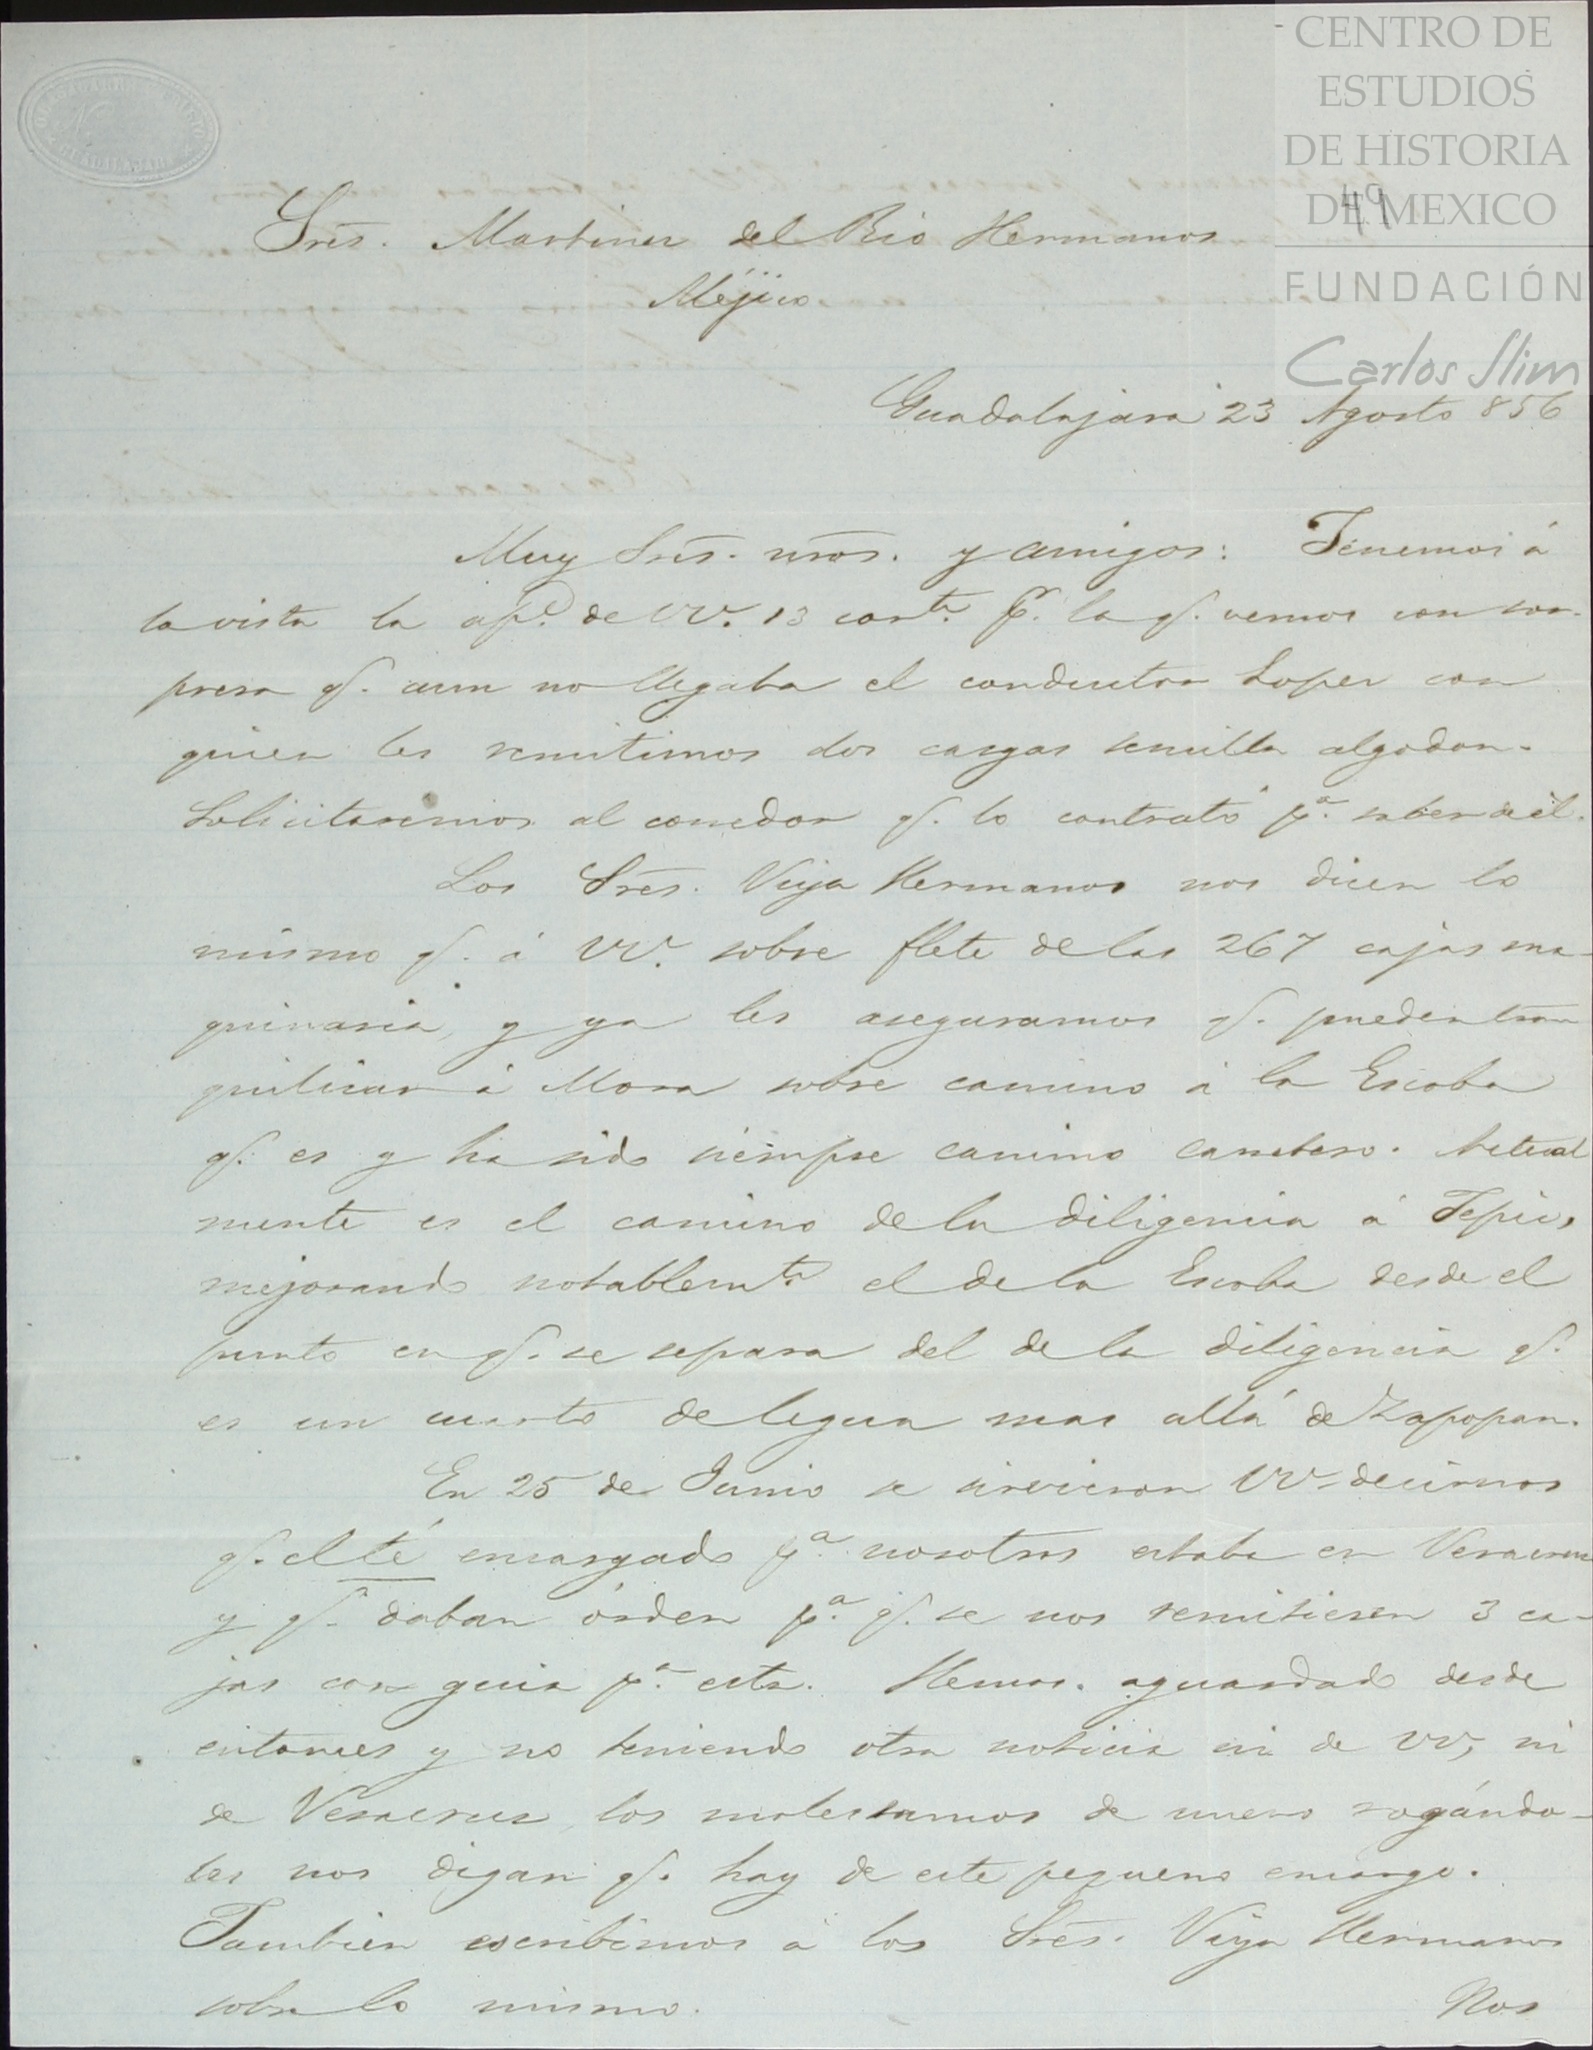 CENTRO DE
ESTUDIOS
DE HISTORIA
DE MEXICO
FUNDACIÓN
Carlos Slim
49
Sres. Martinez del Rio Hermanos
Méjico
Guadalajara 23 Agosto 856
Muy Sres. nros. y amigos: Tenemos á
la vista la ap.ª de VV. 13 cort.e pr. la q. vemos con sor-
presa q. aun no llegaba el conductor Lopez con
quien les remitimos dos cargas semilla algodon.
Solicitaremos al corredor q. lo contrató p.a saber de él.
Los Sres. Viya Hermanos nos dicen lo
mismo q. á VV. sobre flete de las 267 cajas ma-
quinaria, y ya les aseguramos q. pueden tran
quilizar á Mora sobre camino á la Escoba
q. es y ha sido siempre camino carretero. Actual
mente es el camino de la diligencia á Tepic,
mejorando notablem.te el de la Escoba desde el
punto en q. se separa del de la diligencia q.
es un cuarto de legua mas allá de Zapopan.
En 25 de Junio se sirvieron VV. decirnos
q. el té encargado p.a nosotros estaba en Veracruz
y q. daban órden p.a q. se nos remitiesen 3 ca-
jas con guia p.a esta. Hemos aguardado desde
entonces y no teniendo otra noticia ni de VV, ni
de Veracruz, los molestamos de nuevo rogándo-
les nos digan q. hay de este pequeno encargo.
Tambien escribimos á los Sres. Viya Hermanos
sobre lo mismo.
Nos